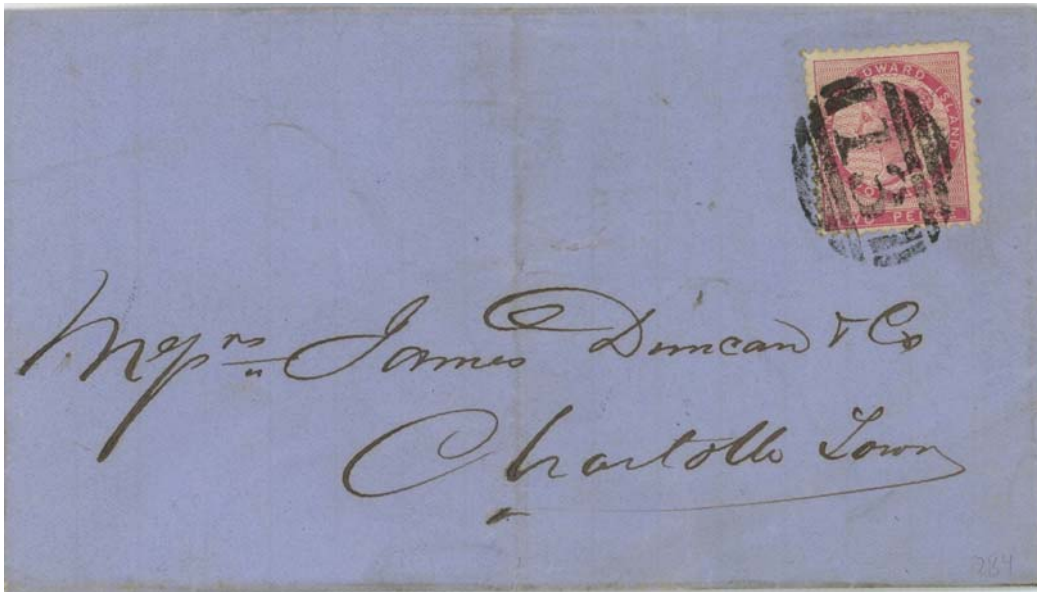 EDWARD ISLAND
TWO PENCE
Messrs James Duncan & Co
Charlotte Town
284